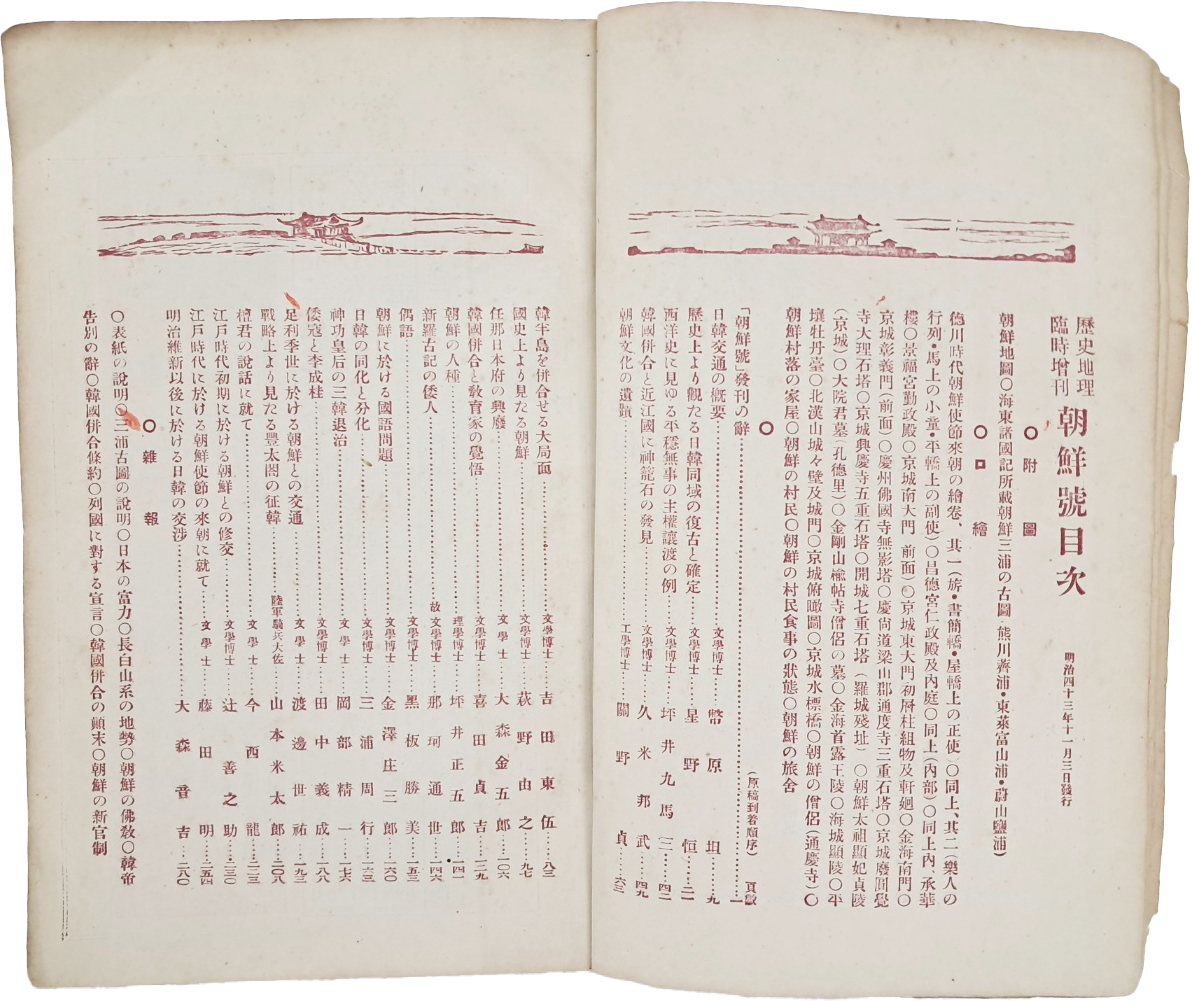 歷史地理
臨時增刊
朝鮮號目次
明治四十三年十一月三日發行
○附圖
朝鮮地圖○海東諸國記所載朝鮮三浦の古圖(熊川薺浦・東萊富山浦・蔚山鹽浦)
○口繪
德川時代朝鮮使節來朝の繪卷、其一(旂・書簡轎・屋轎上の正使)○同上、其二(樂人の
行列・馬上の小童・平轎上の副使)○昌德宮仁政殿及内庭○同上(内部)○同上内、承華
樓○景福宮勤政殿○京城南大門(前面)○京城東大門初層柱組物及軒廻○金海南門○
京城彰義門(前面)○慶州佛國寺無影塔○慶尙道梁山郡通度寺三重石塔○京城廢圓覺
寺大理石塔○京城興慶寺五重石塔○開城七重石塔(羅城殘址)○朝鮮太祖顯妃貞陵
(京城)○大院君墓(孔德里)○金剛山楡帖寺僧侶の墓○金海首露王陵○海城顯陵○平
壤牡丹臺○北漢山城々壁及城門○京城俯瞰圖○京城水標橋○朝鮮の僧侶(通慶寺)○
朝鮮村落の家屋○朝鮮の村民○朝鮮の村民食事の狀態○朝鮮の旅舍
○
(原稿到着順序) 頁數
「朝鮮號」發刊の辭……一
日韓交通の概要……文學博士……幣原坦……九
歷史上より觀たる日韓同域の復古と確定……文學博士……星野恒……二一
西洋史に見ゆる平穩無事の主權讓渡の例……文學博士……坪井九馬三……四二
韓國併合と近江國に神籠石の發見……文學博士……久米邦武……四九
朝鮮文化の遺蹟……工學博士……關野貞……六三
韓半島を併合せる大局面……文學博士……吉田東伍……八三
國史上より見たる朝鮮……文學博士……萩野由之……九七
任那日本府の興廢……文學士……大森金五郎……一〇六
韓國併合と敎育家の覺悟……文學博士……喜田貞吉……一二九
朝鮮の人種……理學博士……坪井正五郎……一四一
新羅古記の倭人……故文學博士……那珂通世……一四六
偶語……文學博士……黑板勝美……一五三
朝鮮に於ける國語問題……文學博士……金澤庄三郎……一六〇
日韓の同化と分化……文學博士……三浦周行……一六三
神功皇后の三韓退治……文學士……岡部精一……一七六
倭寇と李成桂……文學博士……田中義成……一八八
足利季世に於ける朝鮮との交通……文學士……渡邊世祐……一九二
戰略上より見たる豐太閤の征韓……陸軍騎兵大佐……山本米太郎……二〇八
檀君の說話に就て……文學士……今西龍……二二三
江戸時代初期に於ける朝鮮との修交……文學博士……辻善之助……二三〇
江戸時代に於ける朝鮮使節の來朝に就て……文學士……藤田明……二五四
明治維新以後に於ける日韓の交涉……大森音吉……二八〇
○雜報
○表紙の說明○三浦古圖の說明○日本の富力○長白山系の地勢○朝鮮の佛敎○韓帝
告別の辭○韓國併合條約○列國に對する宣言○韓國併合の顚末○朝鮮の新官制